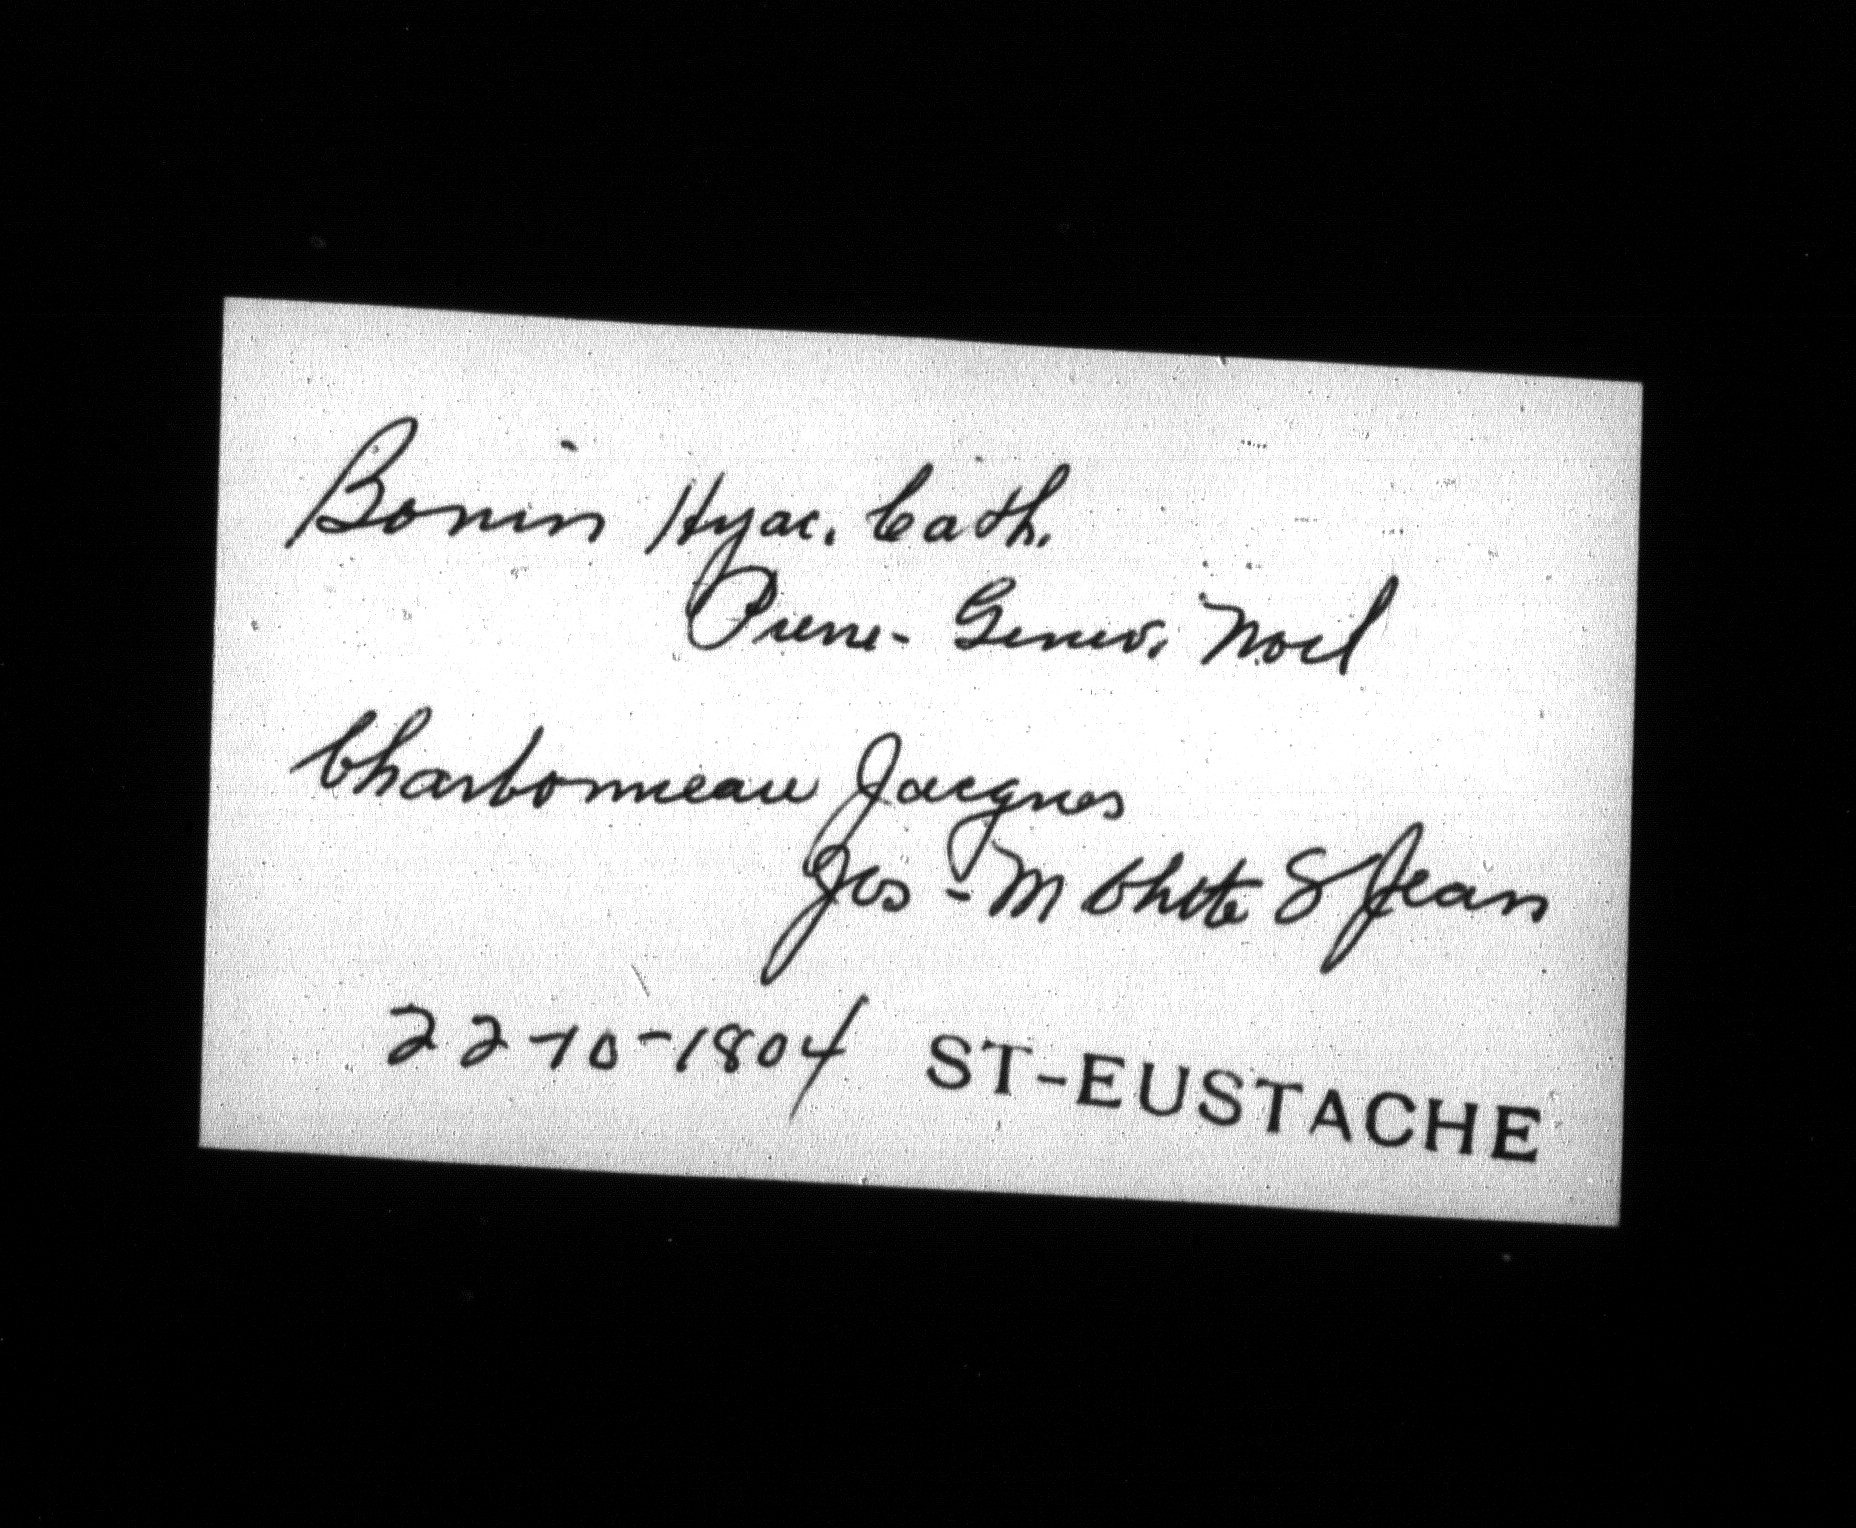 Bonin Hyac. Cath.
Pierre - Genev. Noel
Charbonneau Jacques
Jos - M Chtte S Jean
22-10-1804 ST-EUSTACHE